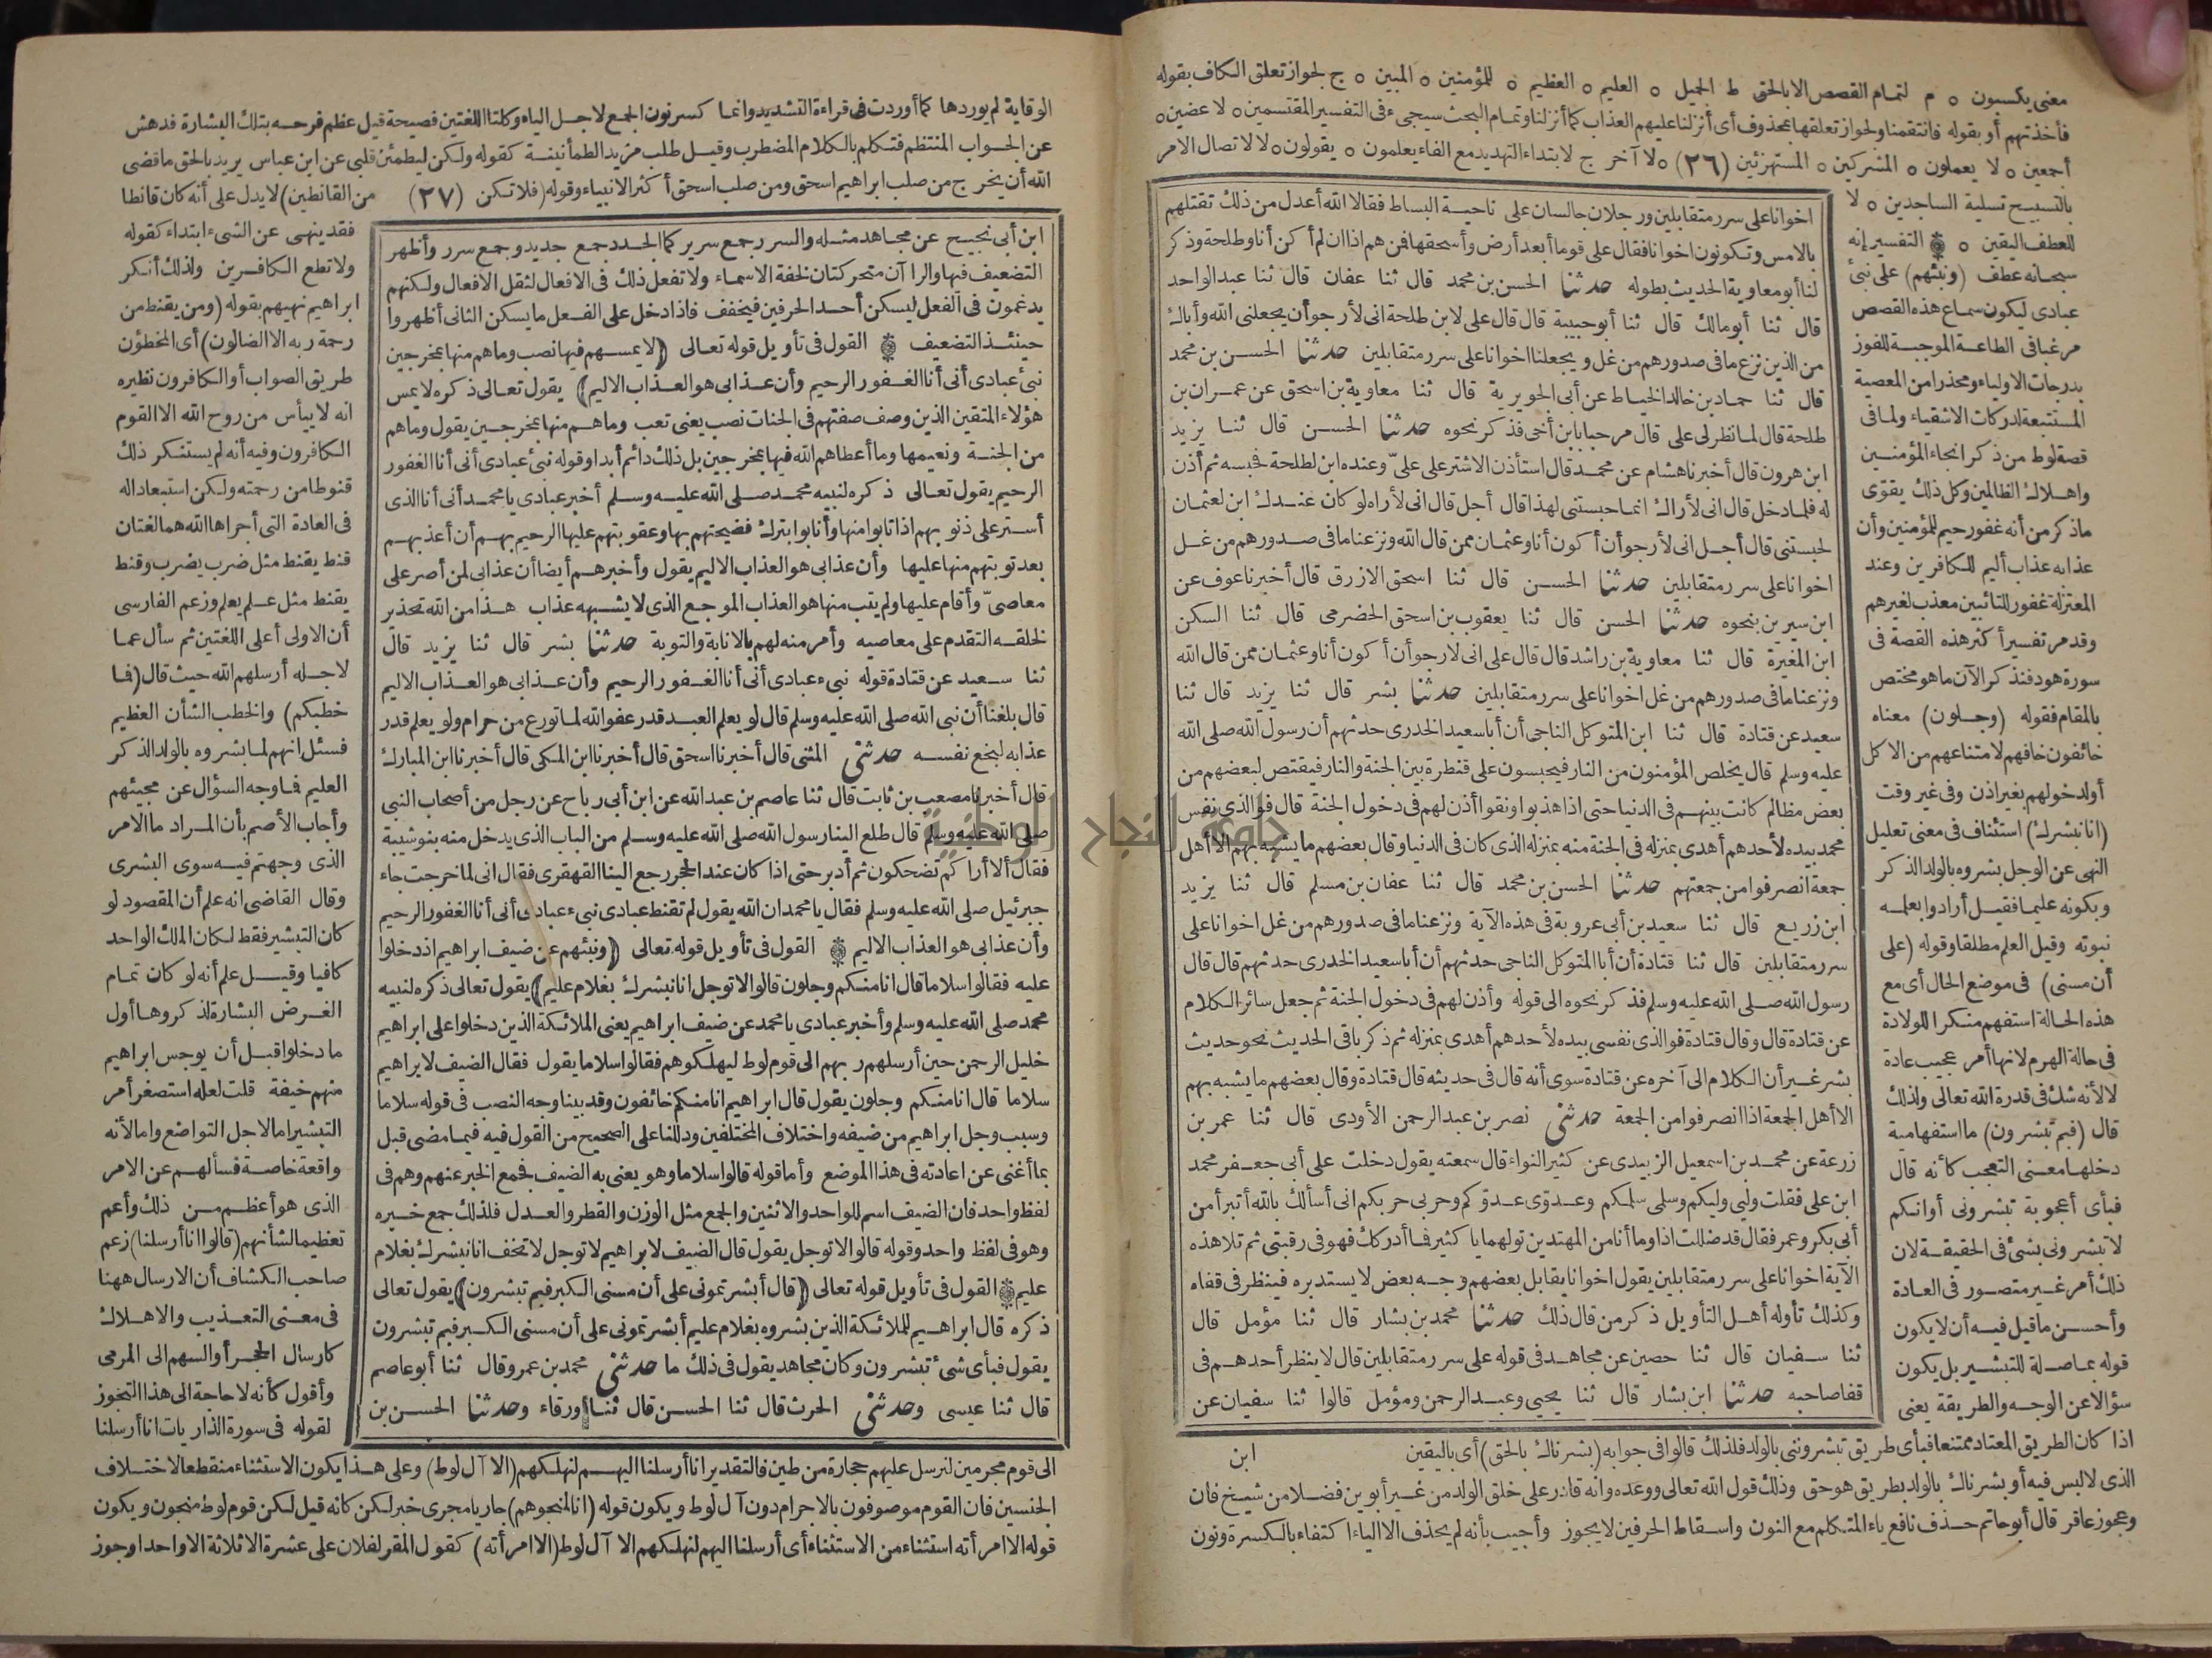 معنى يكسبون ه م لتمام القصص الا بالحق ط الجميل ه العليم ه العظيم ه للمؤمنين ه المبين ه ج لجواز تعلق الكاف بقوله
فأخذتهم أو بقوله فانتقمنا ولجواز تعلقها بمحذوف أى أنزلنا عليهم العذاب كما أنزلنا وتمام البحث سيجىء فى التفسير المقتسمين ه لا عضين ه
أجمعين ه لا يعملون ه المشركين ه المستهزئين (٢٦) ه لا آخر ج لابتداء التهديد مع الفاء يعلمون ه يقولون ه لا لاتصال الامر
بالتسبيح تسلية الساجدين ه لا
للعطف اليقين ه التفسير إنه
سبحانه عطف (ونبئهم) على نبئ
عبادى ليكون سماع هذه القصص
مرغبا فى الطاعة الموجبة للفوز
بدرجات الاولياء ومحذرا من المعصية
المستتبعة لدركات الاشقياء ولما فى
قصة لوط من ذكر انجاء المؤمنين
واهلاك الظالمين وكل ذلك يقوى
ما ذكر من أنه غفور رحيم للمؤمنين وأن
عذابه عذاب أليم للكافرين وعند
المعتزلة غفور للتائبين معذب لغيرهم
وقد مر تفسير أكثر هذه القصة فى
سورة هود فنذكر الآن ما هو مختص
بالمقام فقوله (وجلون) معناه
خائفون خافهم لامتناعهم من الاكل
أو لدخولهم بغير اذن وفى غير وقت
(انا نبشرك) استئناف فى معنى تعليل
النهى عن الوجل بشروه بالولد الذكر
وبكونه عليما فقيل أرادوا بعلمه
نبوته وقيل العلم مطلقا وقوله (على
أن مسنى) فى موضع الحال أى مع
هذه الحالة استفهم منكرا للولادة
فى حالة الهرم لانها أمر عجيب عادة
لا لأنه شك فى قدرة الله تعالى ولذلك
قال (فبم تبشرون) ما استفهامية
دخلها معنى التعجب كأنه قال
فبأى أعجوبة تبشرونى أو انكم
لا تبشرونى بشئ فى الحقيقة لان
ذلك أمر غير متصور فى العادة
وأحسن ما قيل فيه أن لا يكون
قوله بما صلة للتبشير بل يكون
سؤالا عن الوجه والطريقة يعنى
اخوانا على سرر متقابلين ورجلان جالسان على ناحية البساط فقالا الله أعدل من ذلك تقتلهم
بالامس وتكونون اخوانا فقال على قوما أبعد أرض وأسحقها فمن هم اذا ان لم أكن أنا وطلحة وذكر
لنا أبو معاوية الحديث بطوله حدثنا الحسن بن محمد قال ثنا عفان قال ثنا عبد الواحد
قال ثنا أبو مالك قال ثنا أبو حبيبة قال قال على لابن طلحة انى لأرجو أن يجعلنى الله وأباك
من الذين نزع ما فى صدورهم من غل ويجعلنا اخوانا على سرر متقابلين حدثنا الحسن بن محمد
قال ثنا حماد بن خالد الخياط عن أبى الجويرية قال ثنا معاوية بن اسحق عن عمران بن
طلحة قال لما نظر لى على قال مرحبا بابن أخى فذكر نحوه حدثنا الحسن قال ثنا يزيد
ابن هرون قال أخبرنا هشام عن محمد قال استأذن الاشتر على علىّ وعنده ابن لطلحة فحبسه ثم أذن
له فلما دخل قال انى لأراك انما حبستنى لهذا قال أجل قال انى لأراه لو كان عندك ابن لعثمان
لحبستنى قال أجل انى لأرجو أن أكون أنا وعثمان ممن قال الله ونزعنا ما فى صدورهم من غل
اخوانا على سرر متقابلين حدثنا الحسن قال ثنا اسحق الازرق قال أخبرنا عوف عن
ابن سيرين بنحوه حدثنا الحسن قال ثنا يعقوب بن اسحق الحضرمى قال ثنا السكن
ابن المغيرة قال ثنا معاوية بن راشد قال قال على انى لارجو أن أكون أنا وعثمان ممن قال الله
ونزعنا ما فى صدورهم من غل اخوانا على سرر متقابلين حدثنا بشر قال ثنا يزيد قال ثنا
سعيد عن قتادة قال ثنا ابن المتوكل الناجى أن أبا سعيد الخدرى حدثهم أن رسول الله صلى الله
عليه وسلم قال يخلص المؤمنون من النار فيحبسون على قنطرة بين الجنة والنار فيقتص لبعضهم من
بعض مظالم كانت بينهم فى الدنيا حتى اذا هذبوا ونقوا أذن لهم فى دخول الجنة قال فوالذى نفس
محمد بيده لأحدهم أهدى بمنزله فى الجنة منه بمنزله الذى كان فى الدنيا وقال بعضهم ما يشبه بهم الا أهل
جمعة انصرفوا من جمعتهم حدثنا الحسن بن محمد قال ثنا عفان بن مسلم قال ثنا يزيد
ابن زريع قال ثنا سعيد بن أبى عروبة فى هذه الآية ونزعنا ما فى صدورهم من غل اخوانا على
سرر متقابلين قال ثنا قتادة أن أبا المتوكل الناجى حدثهم أن أبا سعيد الخدرى حدثهم قال قال
رسول الله صلى الله عليه وسلم فذكر نحوه الى قوله وأذن لهم فى دخول الجنة ثم جعل سائر الكلام
عن قتادة قال وقال قتادة فوالذى نفسى بيده لأحدهم أهدى بمنزله ثم ذكر باقى الحديث نحو حديث
بشر غير أن الكلام الى آخره عن قتادة سوى أنه قال فى حديثه قال قتادة وقال بعضهم ما يشبه بهم
الا أهل الجمعة اذا انصرفوا من الجمعة حدثنى نصر بن عبد الرحمن الأودى قال ثنا عمر بن
زرعة عن محمد بن اسمعيل الزبيدى عن كثير النواء قال سمعته يقول دخلت على أبى جعفر محمد
ابن على فقلت وليى وليكم وسلمى سلمكم وعدوى عدوكم وحربى حربكم انى أسألك بالله أتبرأ من
أبى بكر وعمر فقال قد ضللت اذا وما أنا من المهتدين تولهما يا كثير فما أدركك فهو فى رقبتى ثم تلا هذه
الآية اخوانا على سرر متقابلين يقول اخوانا يقابل بعضهم وجه بعض لا يستدبره فينظر فى قفاه
وكذلك تأوله أهل التأويل ذكر من قال ذلك حدثنا محمد بن بشار قال ثنا مؤمل قال
ثنا سفيان قال ثنا حصين عن مجاهد فى قوله على سرر متقابلين قال لا ينظر أحدهم فى
قفا صاحبه حدثنا ابن بشار قال ثنا يحيى وعبد الرحمن ومؤمل قالوا ثنا سفيان عن
ابن
اذا كان الطريق المعتاد ممتنعا فبأى طريق تبشروننى بالولد فلذلك قالوا فى جوابه (بشرناك بالحق) أى باليقين
الذى لا لبس فيه أو بشرناك بالولد بطريق هو حق وذلك قول الله تعالى ووعده وانه قادر على خلق الولد من غير أبوين فضلا من شيخ فان
وعجوز عاقر قال أبو حاتم حذف نافع ياء المتكلم مع النون واسقاط الحرفين لا يجوز وأجيب بأنه لم يحذف الا الياء اكتفاء بالكسرة ونون
الوقاية لم يوردها كما أوردت فى قراءة التشديد وانما كسر نون الجمع لاجل الياء وكلتا اللغتين فصيحة قيل عظم فرحه بتلك البشارة فدهش
عن الجواب المنتظم فتكلم بالكلام المضطرب وقيل طلب مزيد الطمأنينة كقوله ولكن ليطمئن قلبى عن ابن عباس يريد بالحق ما قضى
الله أن يخرج من صلب ابراهيم اسحق ومن صلب اسحق أكثر الانبياء وقوله (فلا تكن (٢٧) من القانطين) لا يدل على أنه كان قانطا
ابن أبى نجيح عن مجاهد مثله والسرر جمع سرير كما الجدد جمع جديد وجمع سرر وأظهر
التضعيف فيها والراآن متحركتان لخفة الاسماء ولا تفعل ذلك فى الافعال لثقل الافعال ولكنهم
يدغمون فى الفعل ليسكن أحد الحرفين فيخفف فاذا دخل على الفعل ما يسكن الثانى أظهروا
حينئذ التضعيف القول فى تأويل قوله تعالى (لا يمسهم فيها نصب وما هم منها بمخرجين
نبئ عبادى أنى أنا الغفور الرحيم وأن عذابى هو العذاب الاليم) يقول تعالى ذكره لا يمس
هؤلاء المتقين الذين وصف صفتهم فى الجنات نصب يعنى تعب وما هم منها بمخرجين يقول وما هم
من الجنة ونعيمها وما أعطاهم الله فيها بمخرجين بل ذلك دائم أبدا وقوله نبئ عبادى أنى أنا الغفور
الرحيم يقول تعالى ذكره لنبيه محمد صلى الله عليه وسلم أخبر عبادى يا محمد أنى أنا الذى
أستر على ذنوبهم اذا تابوا منها وأنابوا بترك فضيحتهم بها وعقوبتهم عليها الرحيم بهم أن أعذبهم
بعد توبتهم منها عليها وأن عذابى هو العذاب الاليم يقول وأخبرهم أيضا أن عذابى لمن أصر على
معاصىّ وأقام عليها ولم يتب منها هو العذاب الموجع الذى لا يشبهه عذاب هذا من الله تحذير
لخلقه التقدم على معاصيه وأمر منه لهم بالانابة والتوبة حدثنا بشر قال ثنا يزيد قال
ثنا سعيد عن قتادة قوله نبىء عبادى أنى أنا الغفور الرحيم وأن عذابى هو العذاب الاليم
قال بلغنا أن نبى الله صلى الله عليه وسلم قال لو يعلم العبد قدر عفو الله لما تورع من حرام ولو يعلم قدر
عذابه لبخع نفسه حدثنى المثنى قال أخبرنا اسحق قال أخبرنا ابن المكى قال أخبرنا ابن المبارك
قال أخبرنا مصعب بن ثابت قال ثنا عاصم بن عبد الله عن ابن أبى رباح عن رجل من أصحاب النبى
صلى الله عليه وسلم قال طلع الينا رسول الله صلى الله عليه وسلم من الباب الذى يدخل منه بنو شيبة
فقال ألا أراكم تضحكون ثم أدبر حتى اذا كان عند الحجر رجع الينا القهقرى فقال انى لما خرجت جاء
جبرئيل صلى الله عليه وسلم فقال يا محمد ان الله يقول لم تقنط عبادى نبىء عبادى أنى أنا الغفور الرحيم
وأن عذابى هو العذاب الاليم القول فى تأويل قوله تعالى (ونبئهم عن ضيف ابراهيم اذ دخلوا
عليه فقالوا سلاما قال انا منكم وجلون قالوا لا توجل انا نبشرك بغلام عليم) يقول تعالى ذكره لنبيه
محمد صلى الله عليه وسلم وأخبر عبادى يا محمد عن ضيف ابراهيم يعنى الملائكة الذين دخلوا على ابراهيم
خليل الرحمن حين أرسلهم ربهم الى قوم لوط ليهلكوهم فقالوا سلاما يقول فقال الضيف لابراهيم
سلاما قال انا منكم وجلون يقول قال ابراهيم انا منكم خائفون وقد بينا وجه النصب فى قوله سلاما
وسبب وجل ابراهيم من ضيفه واختلاف المختلفين ودللنا على الصحيح من القول فيه فيما مضى قبل
بما أغنى عن اعادته فى هذا الموضع وأما قوله قالوا سلاما وهو يعنى به الضيف فجمع الخبر عنهم وهم فى
لفظ واحد فان الضيف اسم للواحد والاثنين والجمع مثل الوزن والقطر والعدل فلذلك جمع خبره
وهو فى لفظ واحد وقوله قالوا لا توجل يقول قال الضيف لابراهيم لا توجل لا تخف انا نبشرك بغلام
عليم القول فى تأويل قوله تعالى (قال أبشرتمونى على أن مسنى الكبر فبم تبشرون) يقول تعالى
ذكره قال ابراهيم للملائكة الذين بشروه بغلام عليم أبشرتمونى على أن مسنى الكبر فبم تبشرون
يقول فبأى شىء تبشرون وكان مجاهد يقول فى ذلك ما حدثنى محمد بن عمرو قال ثنا أبو عاصم
قال ثنا عيسى وحدثنى الحرث قال ثنا الحسن قال ثنا ورقاء وحدثنا الحسن بن
فقد ينهى عن الشىء ابتداء كقوله
ولا تطع الكافرين ولذلك أنكر
ابراهيم نهيهم بقوله (ومن يقنط من
رحمة ربه الا الضالون) أى المخطؤن
طريق الصواب أو الكافرون نظيره
انه لا ييأس من روح الله الا القوم
الكافرون وفيه أنه لم يستنكر ذلك
قنوطا من رحمته ولكن استبعادا له
فى العادة التى أجراها الله هما لغتان
قنط يقنط مثل ضرب يضرب وقنط
يقنط مثل علم يعلم وزعم الفارسى
أن الاولى أعلى اللغتين ثم سأل عما
لاجله أرسلهم الله حيث قال (فما
خطبكم) والخطب الشأن العظيم
فسئل انهم لما بشروه بالولد الذكر
العليم فما وجه السؤال عن مجيئهم
وأجاب الأصم بأن المراد ما الامر
الذى وجهتم فيه سوى البشرى
وقال القاضى انه علم أن المقصود لو
كان التبشير فقط لكان الملك الواحد
كافيا وقيل علم أنه لو كان تمام
الغرض البشارة لذكروها أول
ما دخلوا قبل أن يوجس ابراهيم
منهم خيفة قلت لعله استصغر أمر
التبشير اما لاجل التواضع واما لأنه
واقعة خاصة فسألهم عن الامر
الذى هو أعظم من ذلك وأعم
تعظيما لشأنهم (قالوا انا أرسلنا) زعم
صاحب الكشاف أن الارسال ههنا
فى معنى التعذيب والاهلاك
كارسال الحجر أو السهم الى المرمى
وأقول كأنه لا حاجة الى هذا التجوز
لقوله فى سورة الذاريات انا أرسلنا
الى قوم مجرمين لنرسل عليهم حجارة من طين فالتقدير انا أرسلنا اليهم لنهلكهم (الا آل لوط) وعلى هذا يكون الاستثناء منقطعا لاختلاف
الجنسين فان القوم موصوفون بالاجرام دون آل لوط ويكون قوله (انا لمنجوهم) جاريا مجرى خبر لكن كانه قيل لكن قوم لوط منجون ويكون
قوله الا امرأته استثناء من الاستثناء أى أرسلنا اليهم لنهلكهم الا آل لوط (الا امرأته) كقول المقر لفلان على عشرة الا ثلاثة الا واحدا وجوز
جامعة النجاح الوطنية